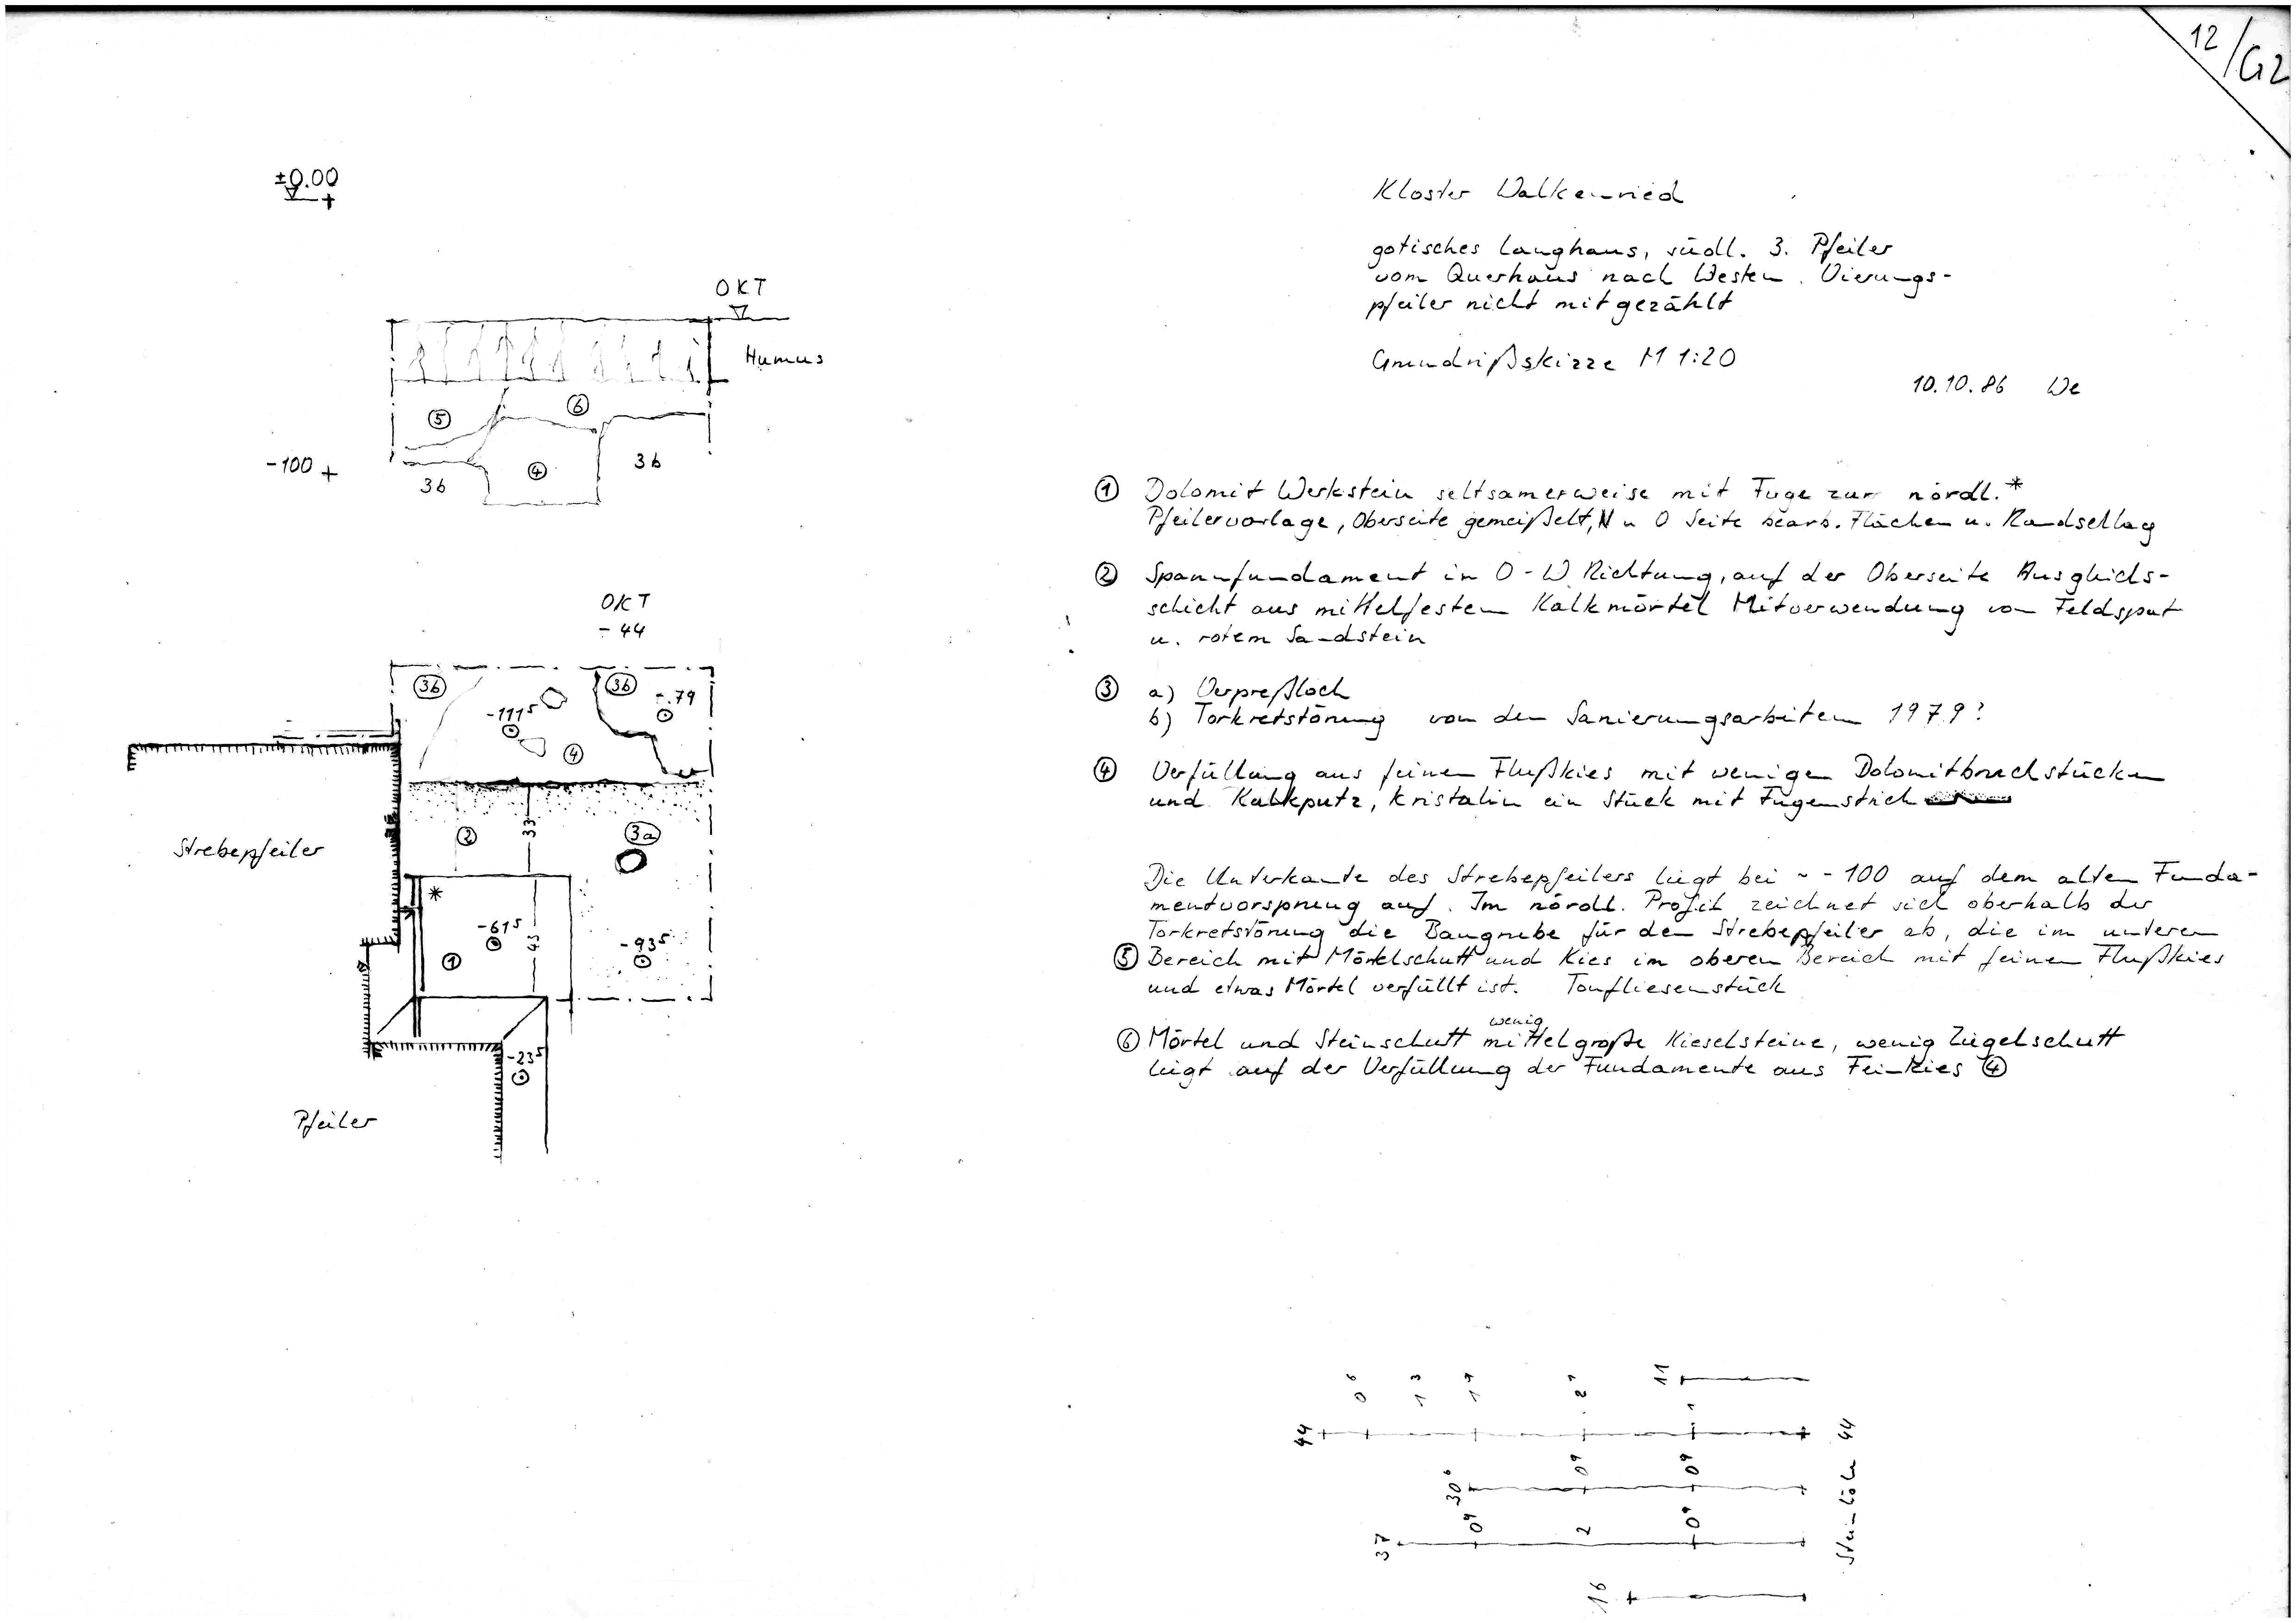 12/G2
±0.00
OKT
Humus
5
6
-100
3b
4
3b
OKT
- 44
3b
3b
-.79
-111⁵
4
Strebepfeiler
2
33
3a
*
-61⁵
43
-93⁵
1
-23⁵
Pfeiler
Kloster Walkenried
gotisches Langhaus, südl. 3. Pfeiler
vom Querhaus nach Westen. Vierungs-
pfeiler nicht mitgezählt
Grundrißskizze M 1:20
10.10.86 We
1 Dolomit Werkstein seltsamerweise mit Fuge zur nördl.*
Pfeilervorlage, Oberseite gemeißelt, N u O Seite bearb. Flächen u. Randschlag
2 Spannfundament in O-W Richtung, auf der Oberseite Ausgleichs-
schicht aus mittelfestem Kalkmörtel Mitverwendung von Feldspat
u. rotem Sandstein
3 a) Verpreßloch
b) Torkretstörung von den Sanierungsarbeiten 1979?
4 Verfüllung aus feinem Flußkies mit wenigen Dolomitbruchstücken
und Kalkputz, kristalin ein Stück mit Fugenstrich
Die Unterkante des Strebepfeilers liegt bei ~ -100 auf dem alten Funda-
mentvorsprung auf. Im nördl. Profil zeichnet sich oberhalb der
Torkretstörung die Baugrube für den Strebepfeiler ab, die im unteren
5 Bereich mit Mörtelschutt und Kies im oberen Bereich mit feinem Flußkies
und etwas Mörtel verfüllt ist. Tonfliesenstück
wenig
6 Mörtel und Steinschutt mittelgroße Kieselsteine, wenig Ziegelschutt
liegt auf der Verfüllung der Fundamente aus Feinkies 4
0⁶ 1³ 1⁷ 2¹ 11
44 1
Steinhöhe 44
30⁶ 0⁹ 0⁹
37 0⁹ 2 0⁹
16